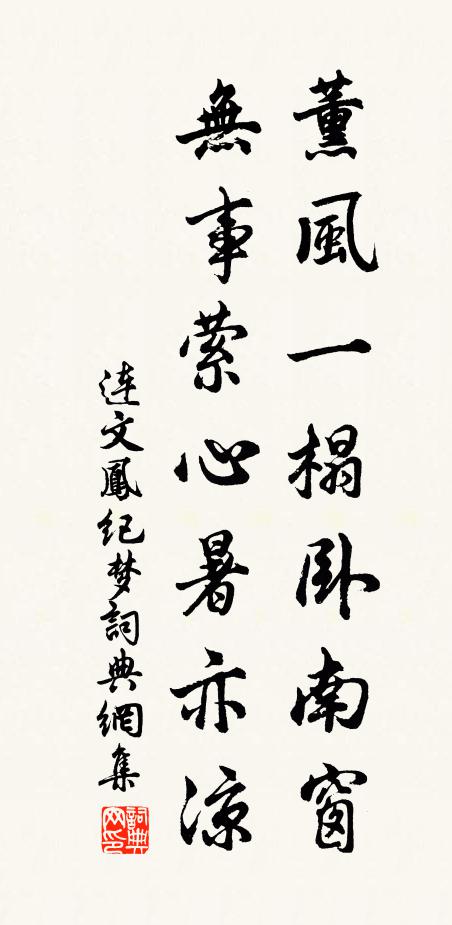 薰風一榻卧南窗
無事縈心暑亦涼
連文鳳纪梦詞典網集
詞典网印